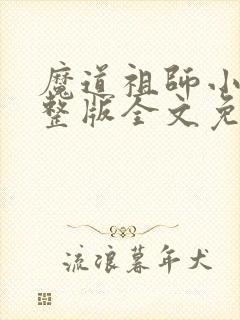 魔道祖師小
整版全文免
流浪暮年犬